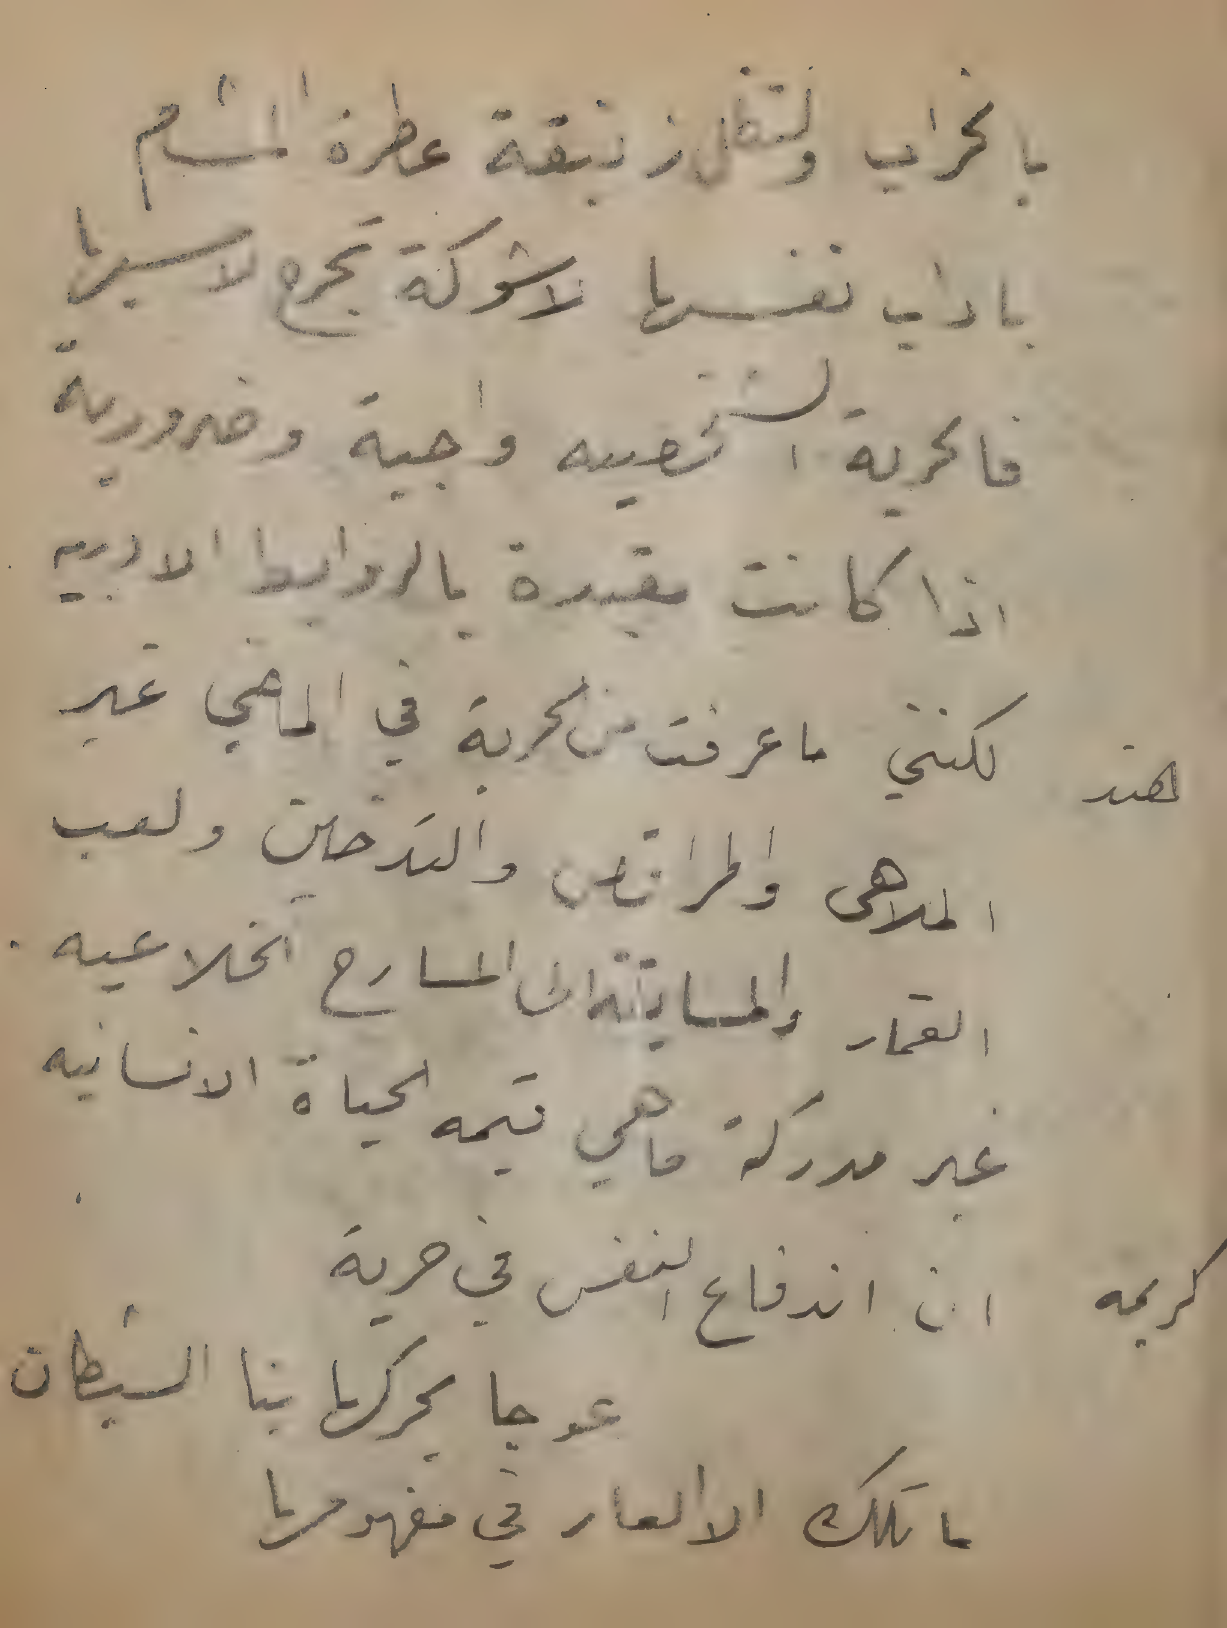 بالخراب ولتظل زنبقة عطرة المشام
باداب نفسها لا شوكة تجرح لاسيرها
فالحرية الشخصيه واجبة وضرورية
اذا كانت مقيدة بالروابط الادبيه
هند لكنني ما عرفت من الحرية في الماضي غير
الملاهى والمراقص والتدخين ولعب
القمار والمسابقة الى المسارح الخلاعيه .
غير مدركة ما هي قيمه الحياة الانسانيه
كريمه ان اندفاع النفس في حرية
عوجا يحركها بنا الشيطان
ما تلك الا العار في مفهومها